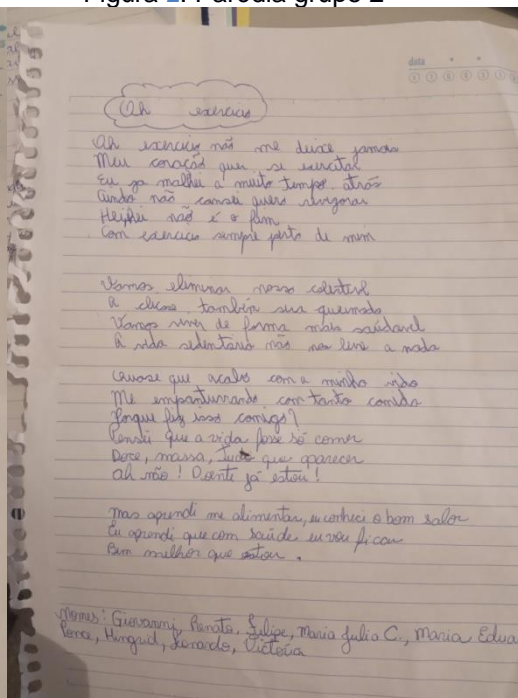 Figura 2: Paródia grupo 2
data
Oh exercicio
Oh exercicio não me deixe jamais
Meu coração quer se exercitar
Eu ja malhei a muito tempo atrás
Ainda não cansei quero revigorar
não é o fim
Com exercicio sempre perto de mim
Vamos eliminar nosso colesterol
A também sera queimada
Vamos viver de forma mais saúdavel
A vida sedentaria não nos leve a nada
Quase que acabo com a minha vida
Me empanturrando com tanto comida
Porque fez isso comigo?
Pensei que a vida fosse só comer
Doce, massa, tudo que aparecer
Oh não! Doente já estou!
Mas aprendi me alimentar, eu conheci o bom sabor
Eu aprendi que com saúde eu vou ficar
Bem melhor que estou.
Nomes: Giovanni, Renata, Felipe, Maria Julia C., Maria Edua
Hingrid, Leonardo, Victoria